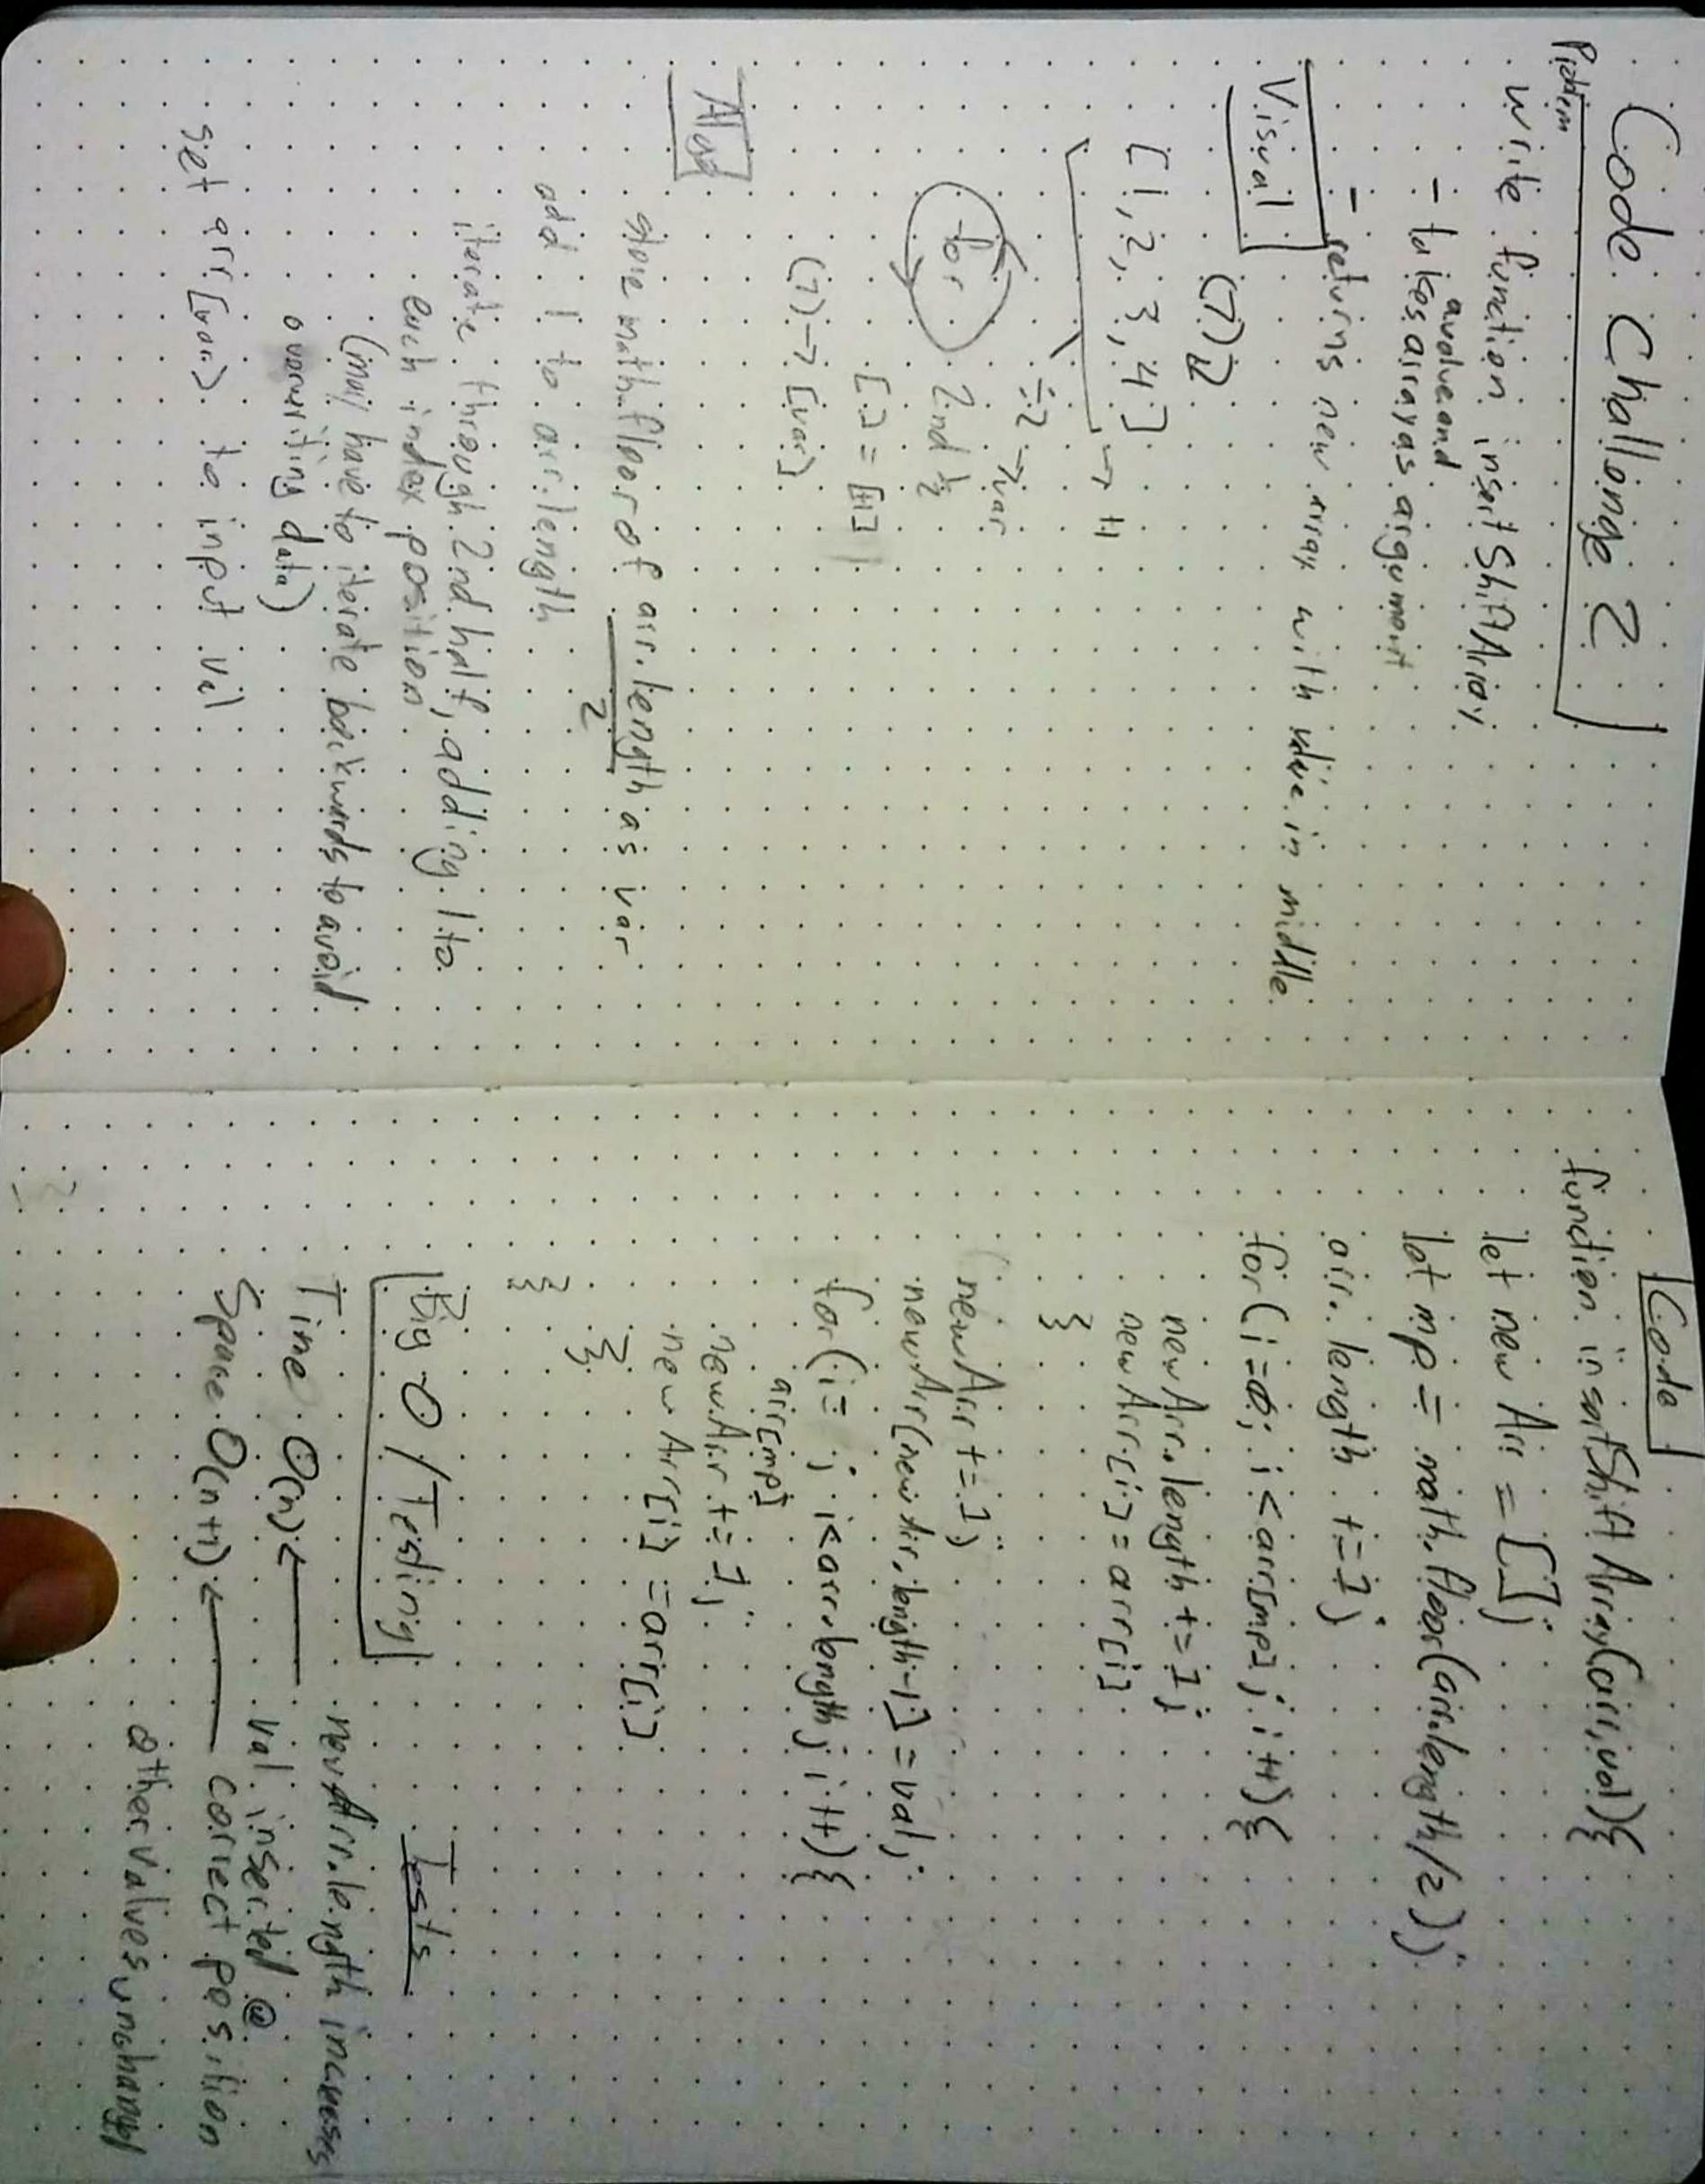 Code Challenge 2
Problem
write function insertShiftArray
- takes array as argument
a value and
- returns new array with value in middle
Visual
(7)
[1, 2, 3, 4] → +1
÷2 → var
for 2nd ½
[ ] = [+1]
(7) → [var]
Algo
store math.floor of arr.length as var
2
add 1 to arr.length
iterate through 2nd half, adding 1 to
each index position
(may have to iterate backwards to avoid
overwriting data)
set arr[var] to input val
Code
function insertShiftArray(arr, val){
let newArr = [];
let mp = math.floor(arr.length/2);
arr.length += 1;
for (i=0; i<arr[mp]; i++){
newArr.length += 1;
newArr[i] = arr[i]
}
newArr += 1;
newArr[newArr.length-1] = val;
for (i= ; i<arr.length; i++){
arr[mp]
newArr += 1;
newArr[i] = arr[i]
}
}
Big O / Testing
Time O(n) ←
Space O(n+1) ←
Tests
newArr.length increases
val inserted @
correct position
other values unchanged